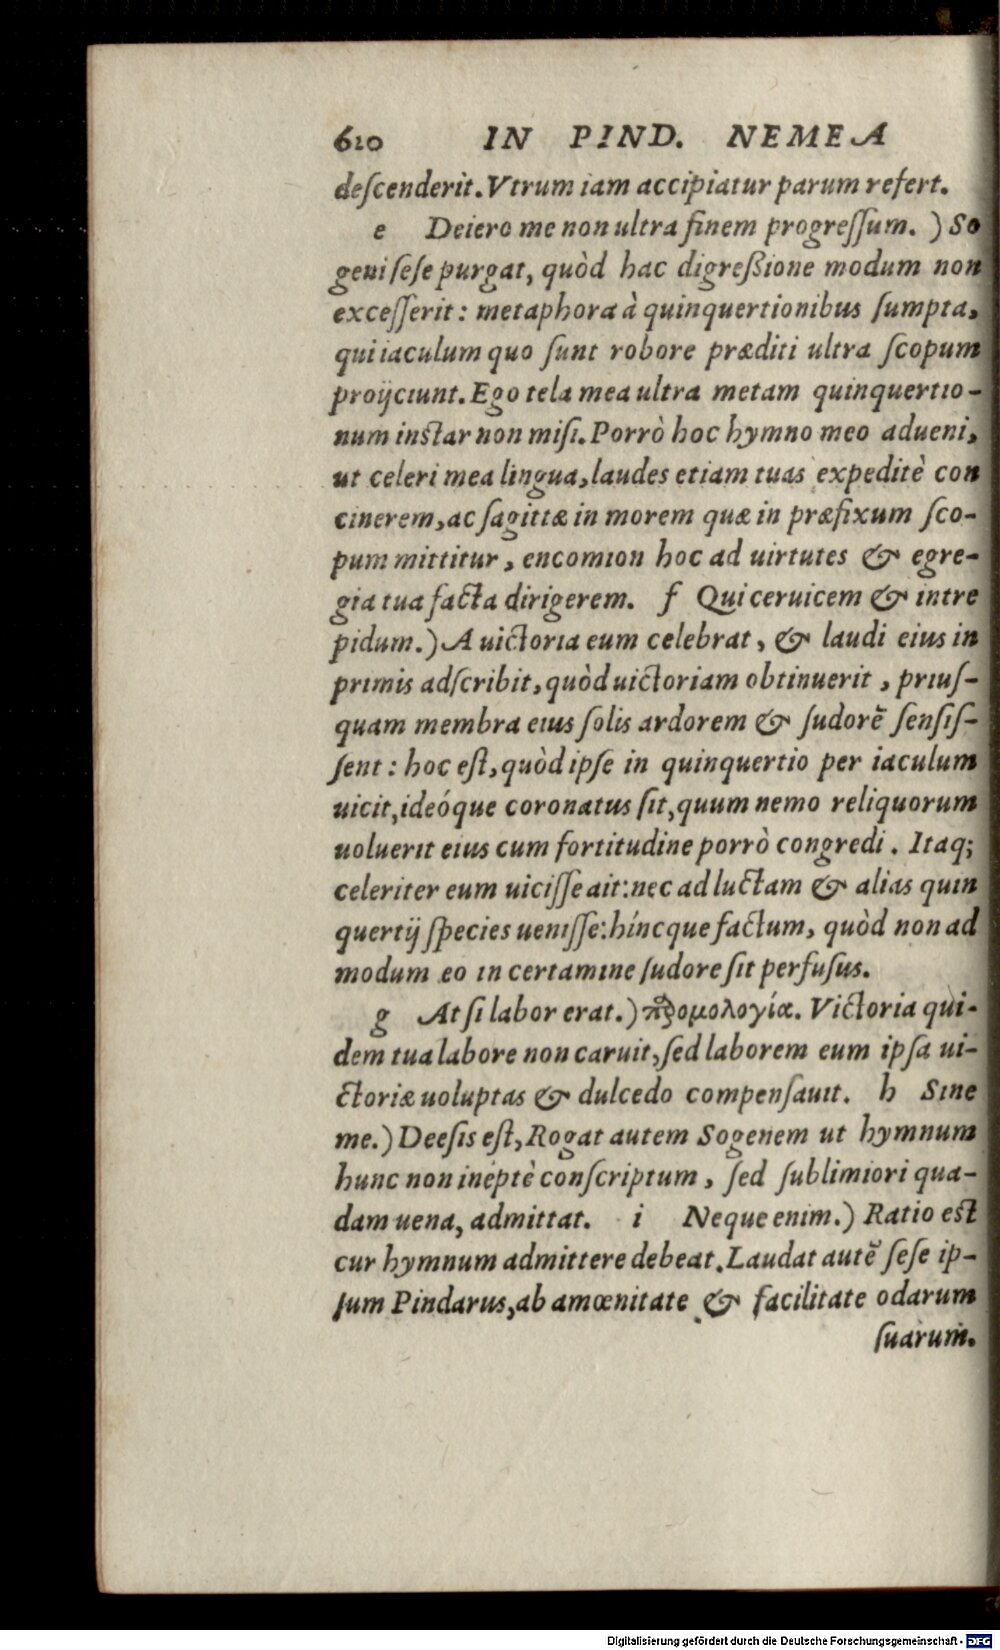 620 IN PIND. NEMEA
deſcenderit. Vtrum iam accipiatur parum refert.
e Deiero me non ultra finem progreſſum.) So
geni ſeſe purgat, quòd hac digreßione modum non
exceſſerit: metaphora à quinquertionibus ſumpta,
qui iaculum quo ſunt robore præditi ultra ſcopum
proijciunt. Ego tela mea ultra metam quinquertio-
num inſtar non miſi. Porrò hoc hymno meo adueni,
ut celeri mea lingua, laudes etiam tuas expeditè con
cinerem, ac ſagittæ in morem quæ in præfixum ſco-
pum mittitur, encomion hoc ad uirtutes & egre-
gia tua facta dirigerem. f Qui ceruicem & intre
pidum.) A uictoria eum celebrat, & laudi eius in
primis adſcribit, quòd uictoriam obtinuerit, priuſ-
quam membra eius ſolis ardorem & ſudorē ſenſiſ-
ſent: hoc eſt, quòd ipſe in quinquertio per iaculum
uicit, ideóque coronatus ſit, quum nemo reliquorum
uoluerit eius cum fortitudine porrò congredi. Itaq;
celeriter eum uiciſſe ait: nec ad luctam & alias quin
quertij ſpecies ueniſſe: híncque factum, quòd non ad
modum eo in certamine ſudore ſit perfuſus.
g At ſi labor erat.) προμολογία. Victoria qui-
dem tua labore non caruit, ſed laborem eum ipſa ui-
ctoriæ uoluptas & dulcedo compenſauit. h Sine
me.) Deeſis eſt, Rogat autem Sogenem ut hymnum
hunc non ineptè conſcriptum, ſed ſublimiori qua-
dam uena, admittat. i Neque enim.) Ratio eſt
cur hymnum admittere debeat. Laudat autē ſeſe ip-
ſum Pindarus, ab amœnitate & facilitate odarum
ſuarum.
Digitalisierung gefördert durch die Deutsche Forschungsgemeinschaft - DFG